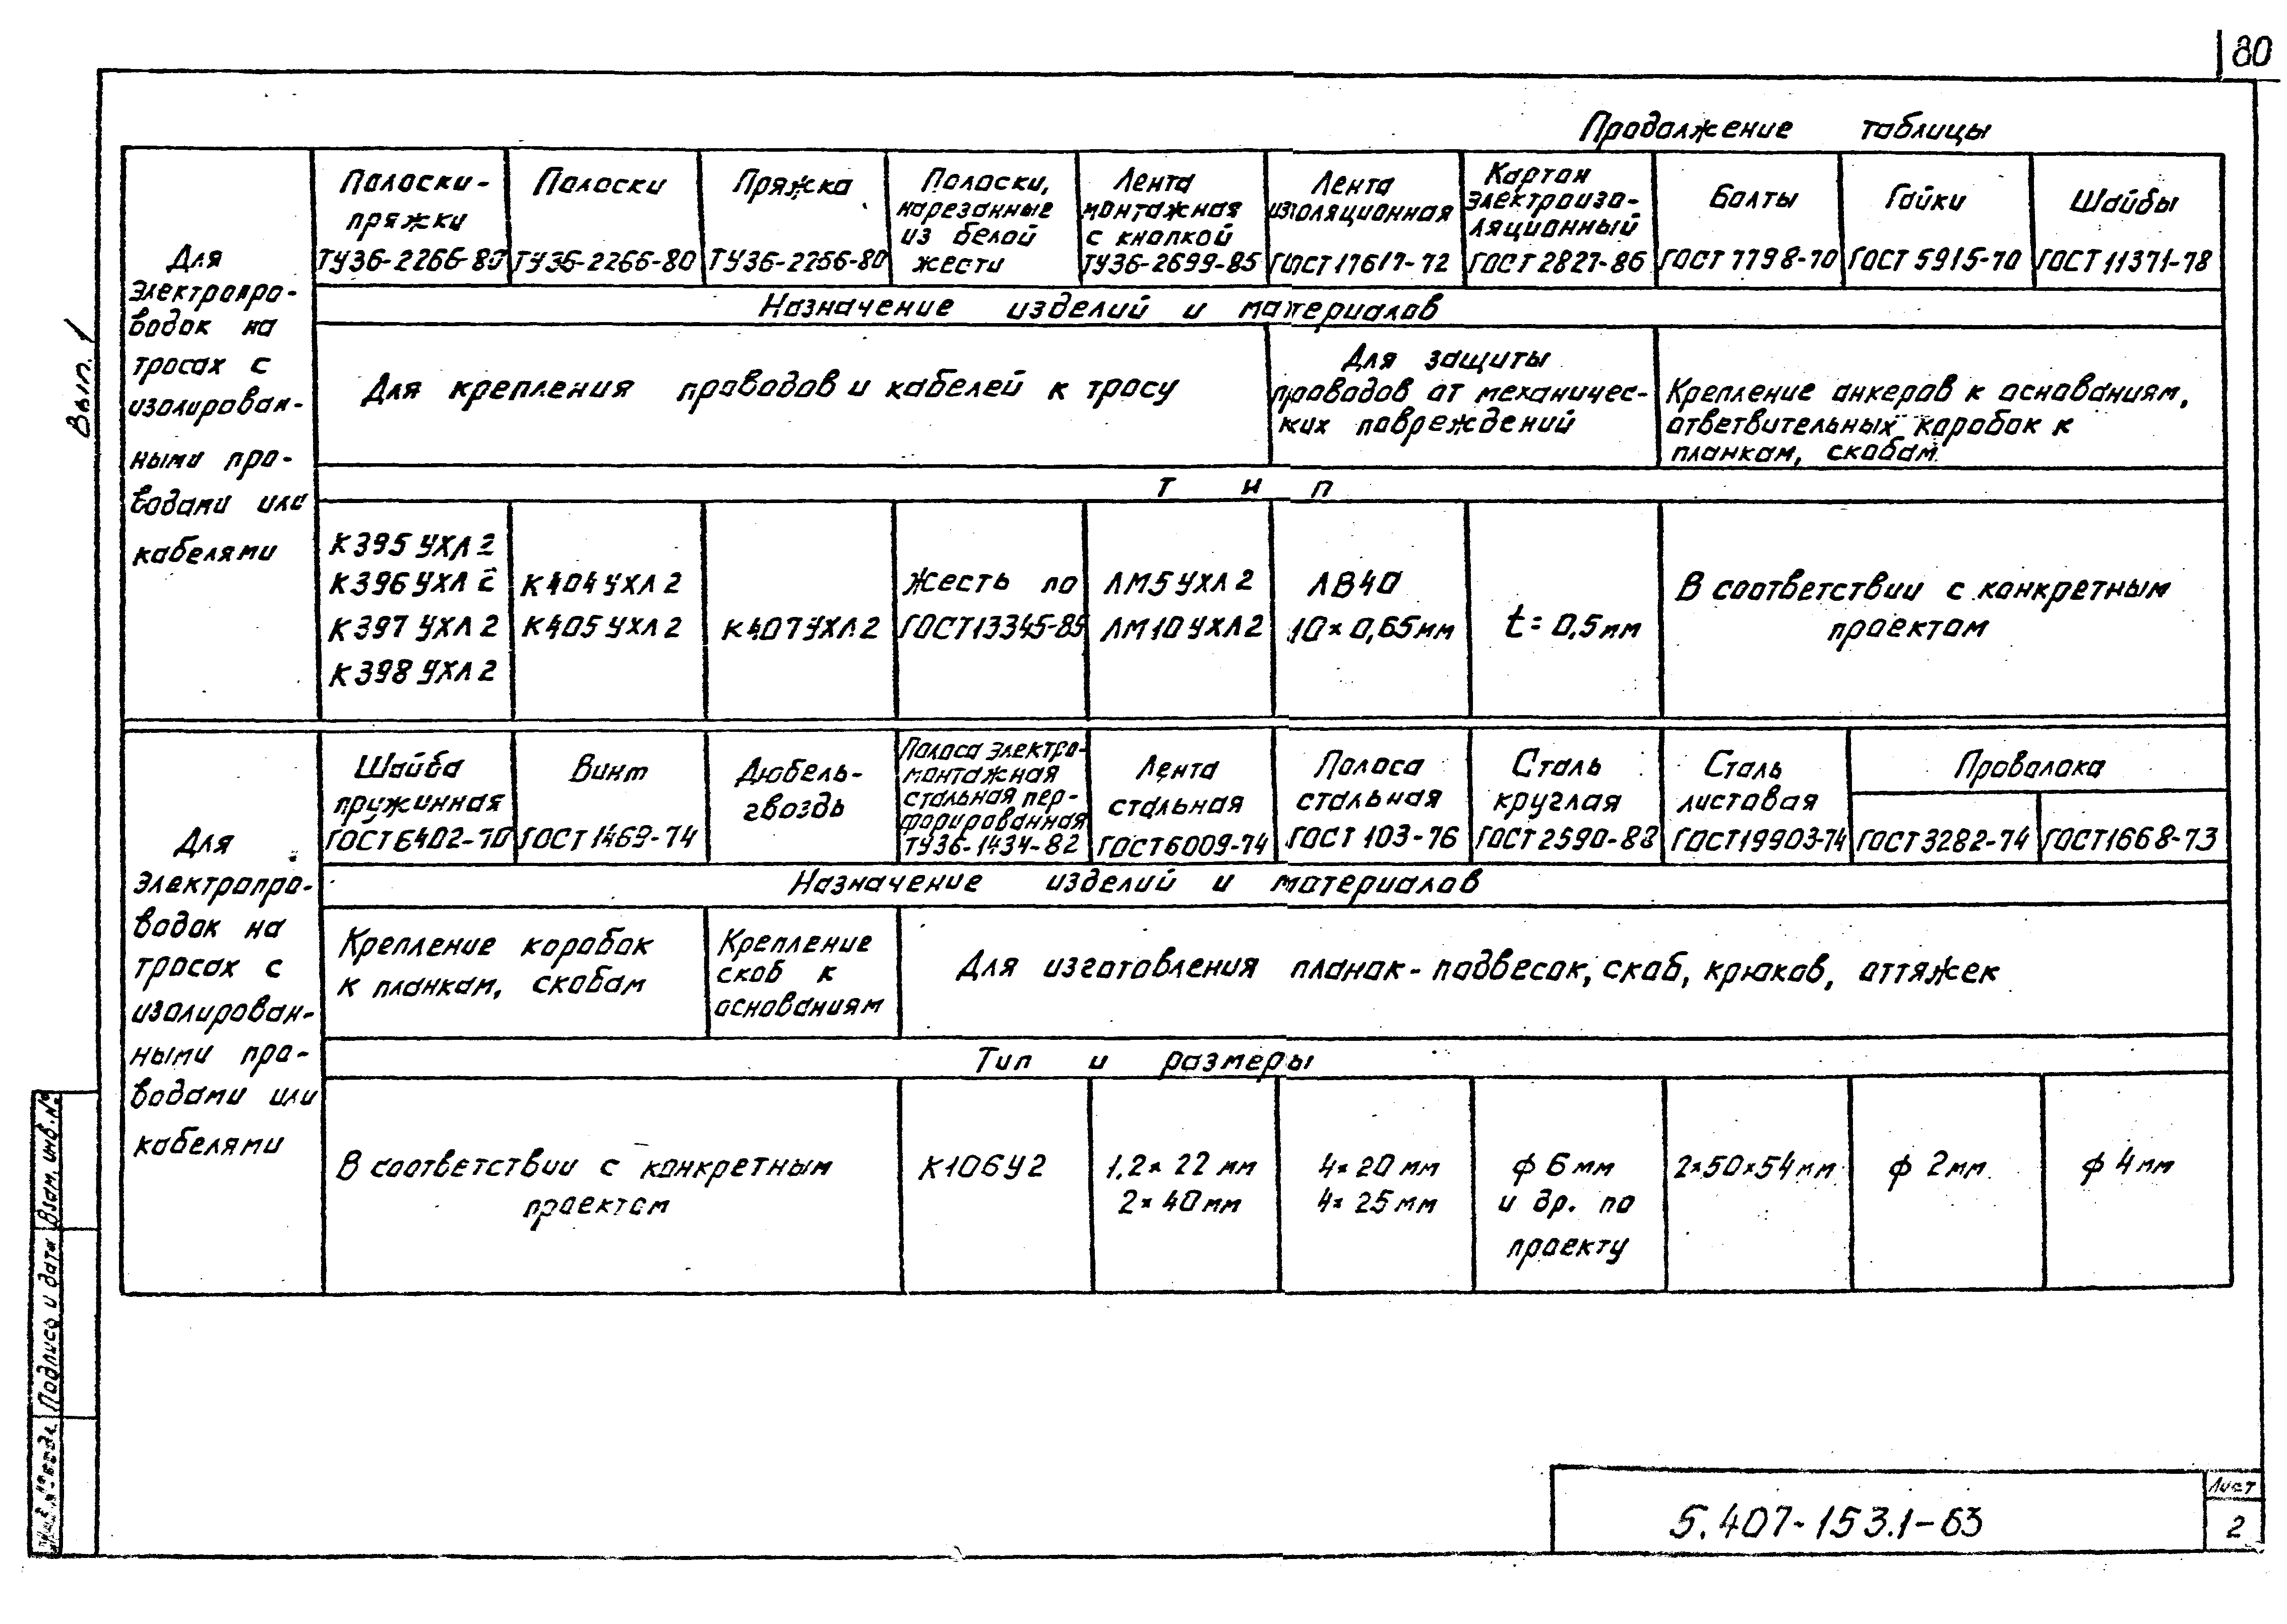 80
Продолжение таблицы
Вып. 1
Для
электропро-
водок на
тросах с
изолирован-
ными про-
водами или
кабелями
Полоски-
пряжки
ТУ36-2266-80
Полоски
ТУ36-2266-80
Пряжка
ТУ36-2266-80
Полоски,
нарезанные
из белой
жести
Лента
монтажная
с кнопкой
ТУ36-2699-85
Лента
изоляционная
ГОСТ 17617-72
Картон
электроизо-
ляционный
ГОСТ 2827-86
Болты
ГОСТ 7798-70
Гайки
ГОСТ 5915-70
Шайбы
ГОСТ 11371-78
Назначение изделий и материалов
Для крепления проводов и кабелей к тросу
Для защиты
проводов от механичес-
ких повреждений
Крепление анкеров к основаниям,
ответвительных коробок к
планкам, скобам.
Тип
К395 УХЛ 2
К396 УХЛ 2
К397 УХЛ 2
К398 УХЛ 2
К404 УХЛ 2
К405 УХЛ 2
К407 УХЛ 2
Жесть по
ГОСТ 13345-85
ЛМ5 УХЛ 2
ЛМ10 УХЛ2
ЛВ40
10×0,65мм
t=0,5мм
В соответствии с конкретным
проектом
Для
электропро-
водок на
тросах с
изолирован-
ными про-
водами или
кабелями
Шайба
пружинная
ГОСТ 6402-70
Винт
ГОСТ 1469-74
Дюбель-
гвоздь
Полоса электро-
монтажная
стальная пер-
форированная
ТУ36-1434-82
Лента
стальная
ГОСТ 6009-74
Полоса
стальная
ГОСТ 103-76
Сталь
круглая
ГОСТ 2590-88
Сталь
листовая
ГОСТ 19903-74
Проволока
ГОСТ 3282-74
ГОСТ 1668-73
Назначение изделий и материалов
Крепление коробок
к планкам, скобам
Крепление
скоб к
основаниям
Для изготовления планок-подвесок, скоб, крюков, оттяжек
Тип и размеры
В соответствии с конкретным
проектом
К106У2
1,2×22 мм
2×40мм
4×20 мм
4×25 мм
ф 6 мм
и др. по
проекту
2×50×54мм
ф 2мм
ф 4мм
Взам. инв. №
Подпись и дата
5.407-153.1-63
Лист
2